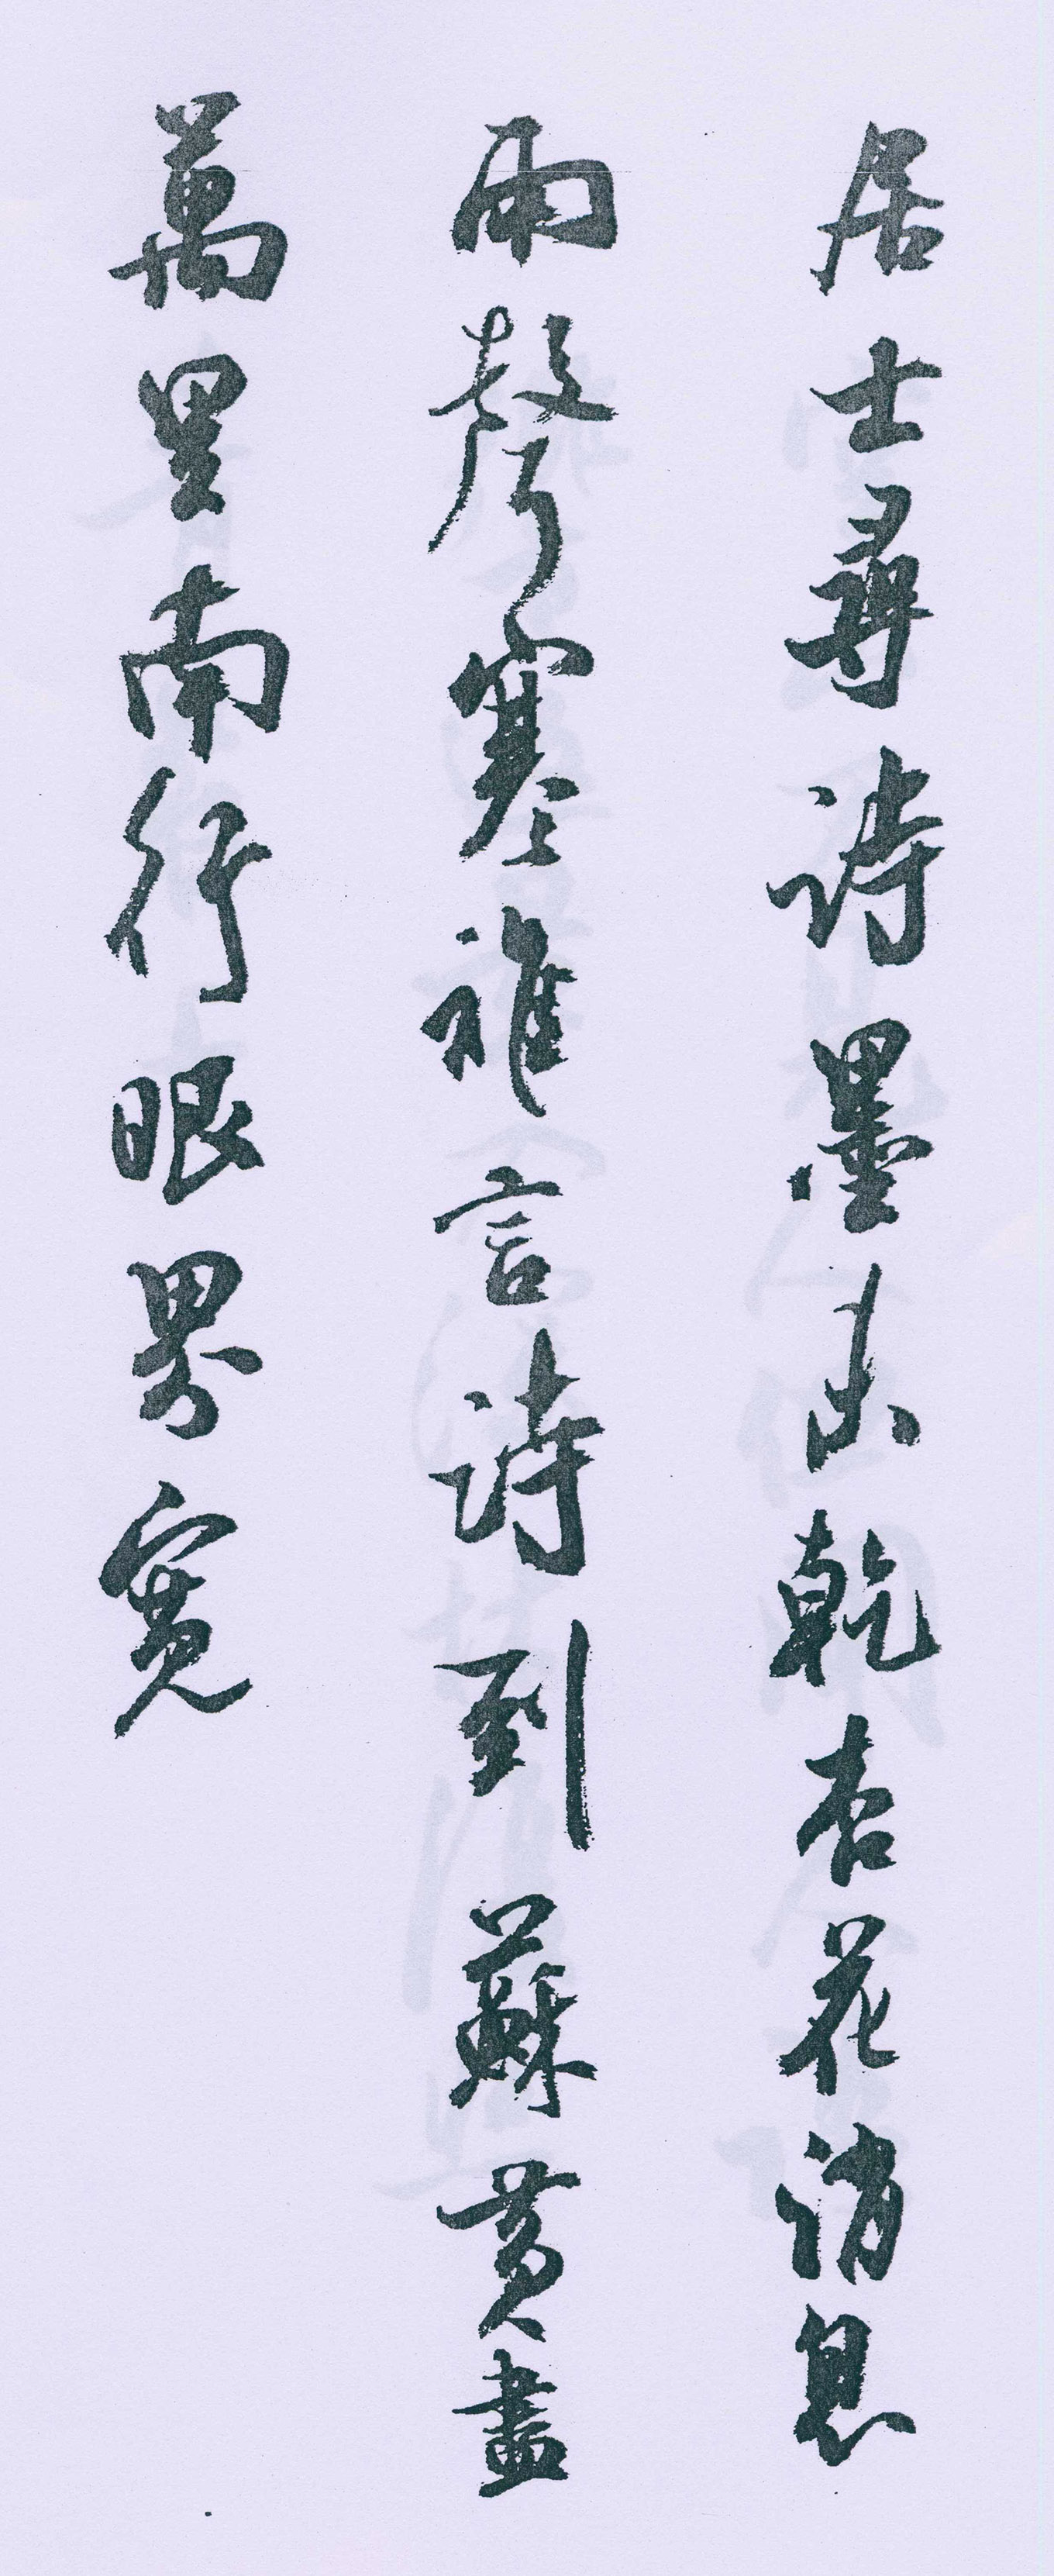 居士尋詩墨未乾杏花消息
雨聲寒誰言詩到蘇黃盡
萬里南行眼界寬